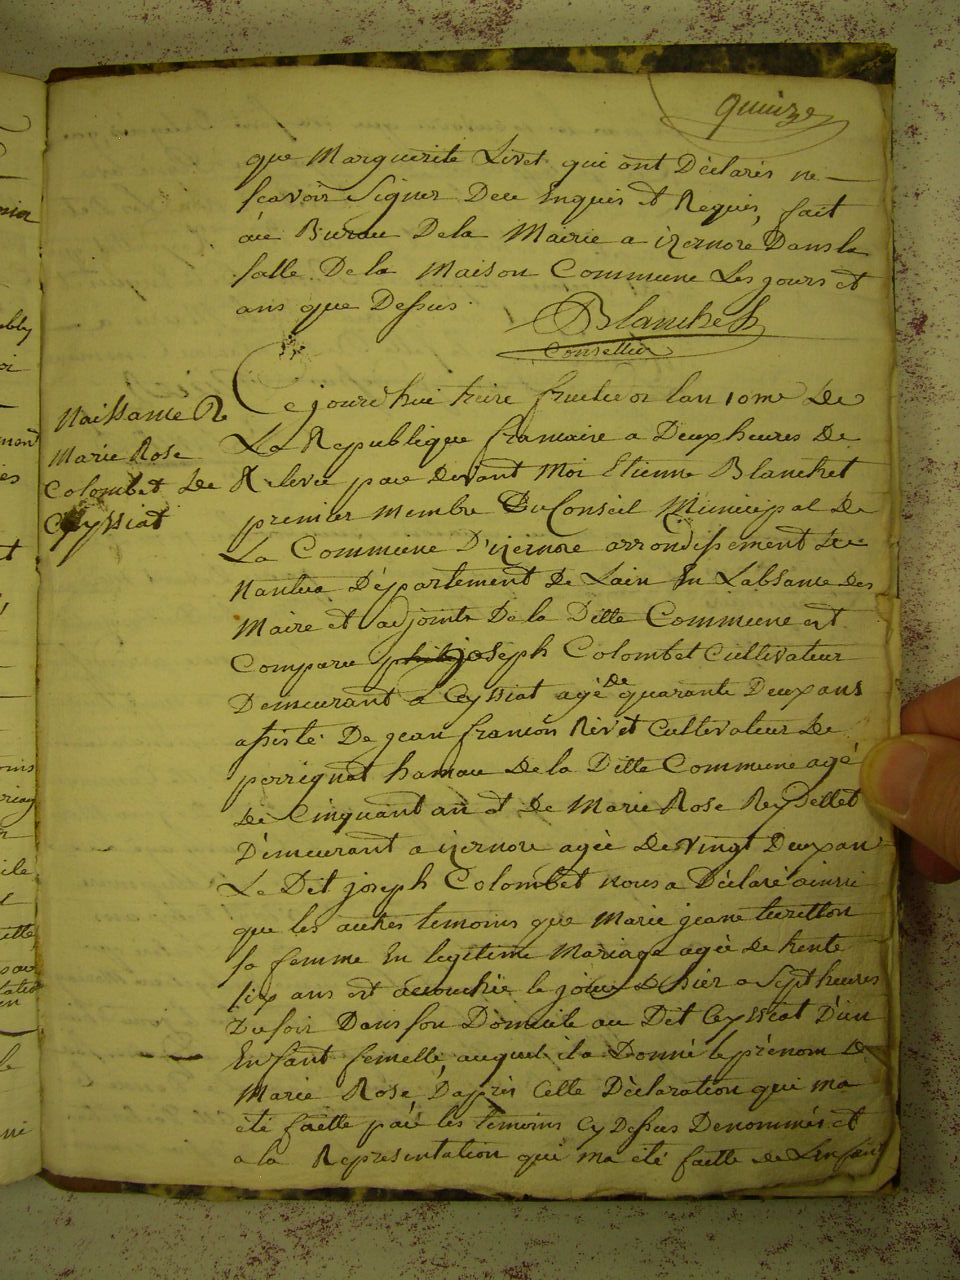 quinze
que Marguerite Livet qui ont Déclarés ne
scavoir Signer Dece Enquis et Requis, fait
au Bureau De la Mairie a izernore Dans la
salle De la Maison Commune Les jours et
ans que Dessus.
Blanchet
Conseiller
Naissance De
Marie Rose
Colombet de
Ceyssiat
Ce jourd'hui treize fructidor lan 10me De
La Republique francaise a Deux heures De
Relevée par devant Moi Etienne Blanchet
premier Membre Du Conseil Municipal De
La Commune D'izernore arrondissement de
Nantua Département De Lain En Labsance des
Maire et adjoints De la Ditte Commune est
Comparu joseph Colombet Cultivateur
Demeurant a Ceyssiat agé de quarante Deux ans
assisté De jean francois Rivet Cultivateur De
perrignat hamau De la Ditte Commune agé
de Cinquant an et De Marie Rose Reydellet
Demeurant a izernore agée De vingt Deux an
Le Dit joseph Colombet nous a Déclaré ainssi
que les autres temoins que Marie jeane
sa femme En legitime Mariage agée de trente
six ans est accouchée le jour de hier a Sept heures
Du soir Dans son Domicile au Dit Ceyssiat D'un
Enfant femelle auquel il a Donné le prénom De
Marie Rose, D'après Cette Déclaration qui ma
été faitte par les temoins Cy Dessus Denommés et
a la Representation qui ma été faitte de Lenfant